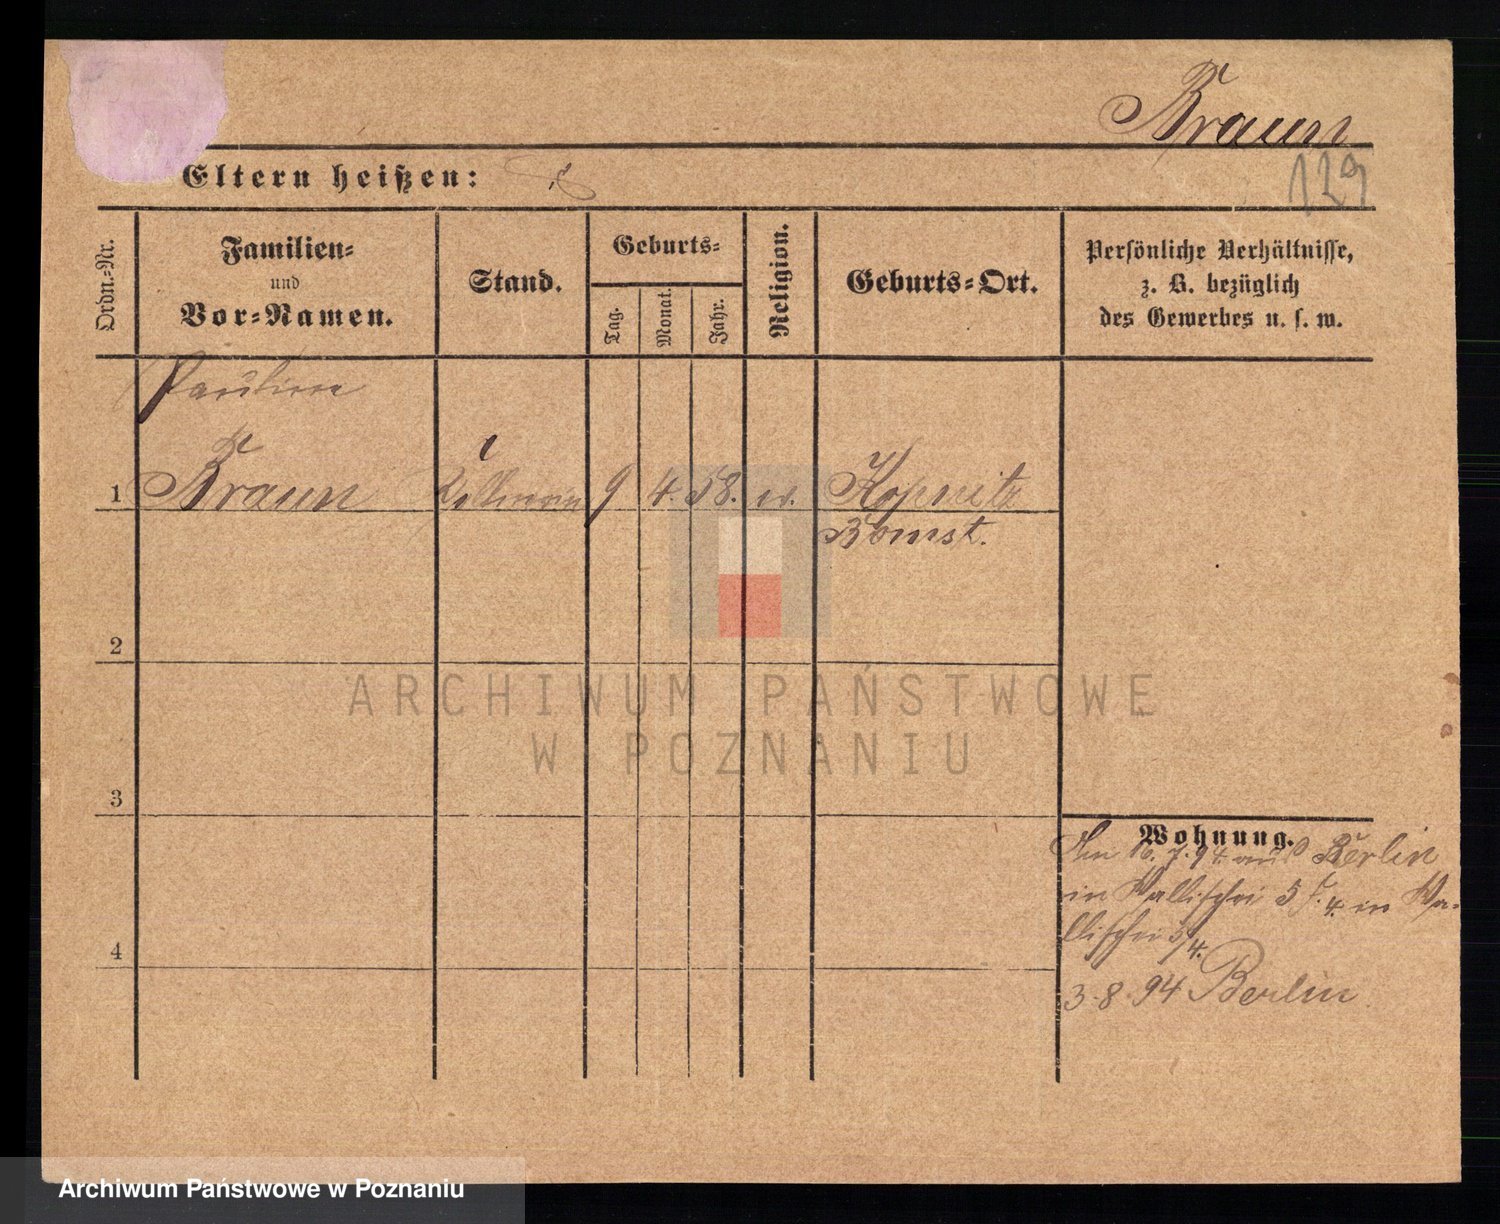 Braun
129
Eltern heißen:
Ordn.-Nr.
Familien-
und
Vor-Namen.
Stand.
Geburts-
Tag.
Monat.
Jahr.
Religion.
Geburts-Ort.
Persönliche Verhältnisse,
z. B. bezüglich
des Gewerbes u. s. w.
Pauline
1 Braun Kellnerin 9 4. 58. ev. Kopnitz
Bomst.
2
3
4
Wohnung.
7. 94. aus Berlin
in Wallischei 5 4. in Wa-
llischei 5/4.
3. 8. 94 Berlin
ARCHIWUM PAŃSTWOWE
W POZNANIU
Archiwum Państwowe w Poznaniu